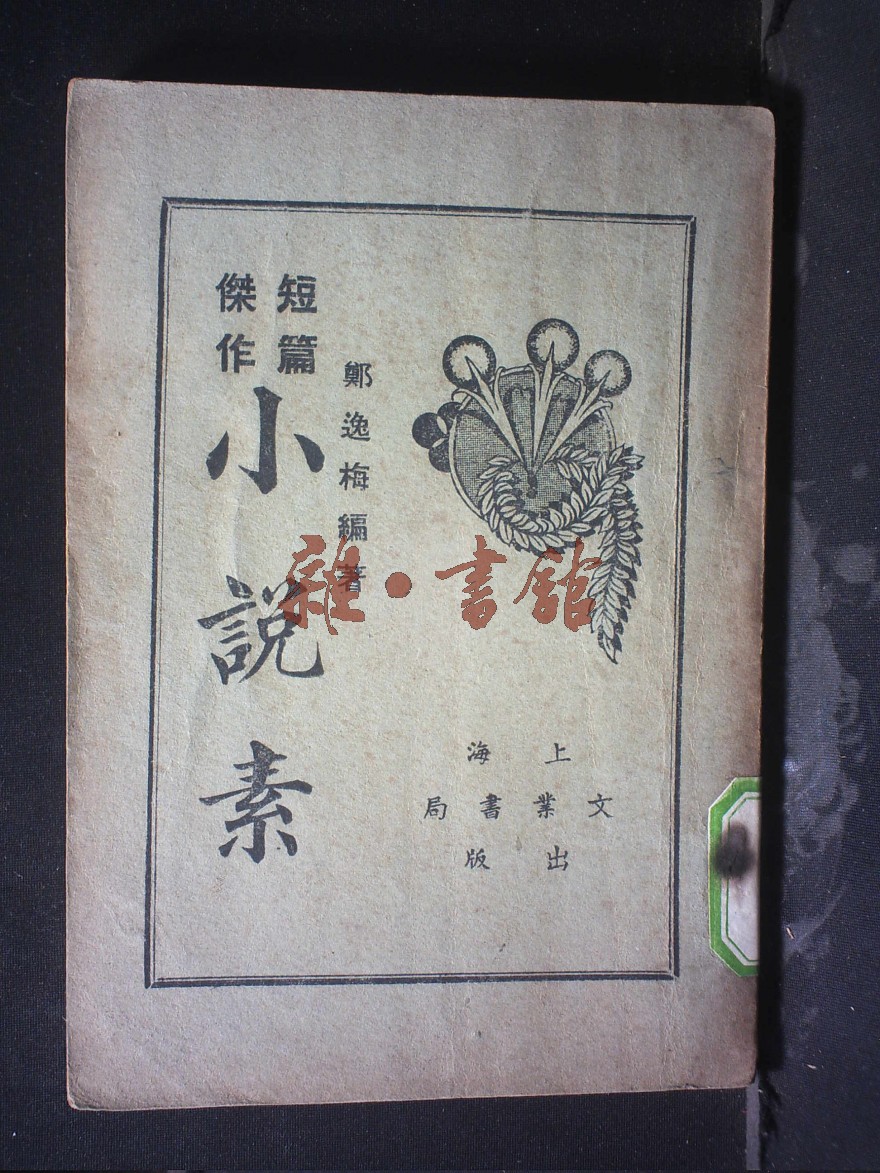 短篇
傑作
小說素
鄭逸梅編著
上海
文業書局
出版
雜·書館